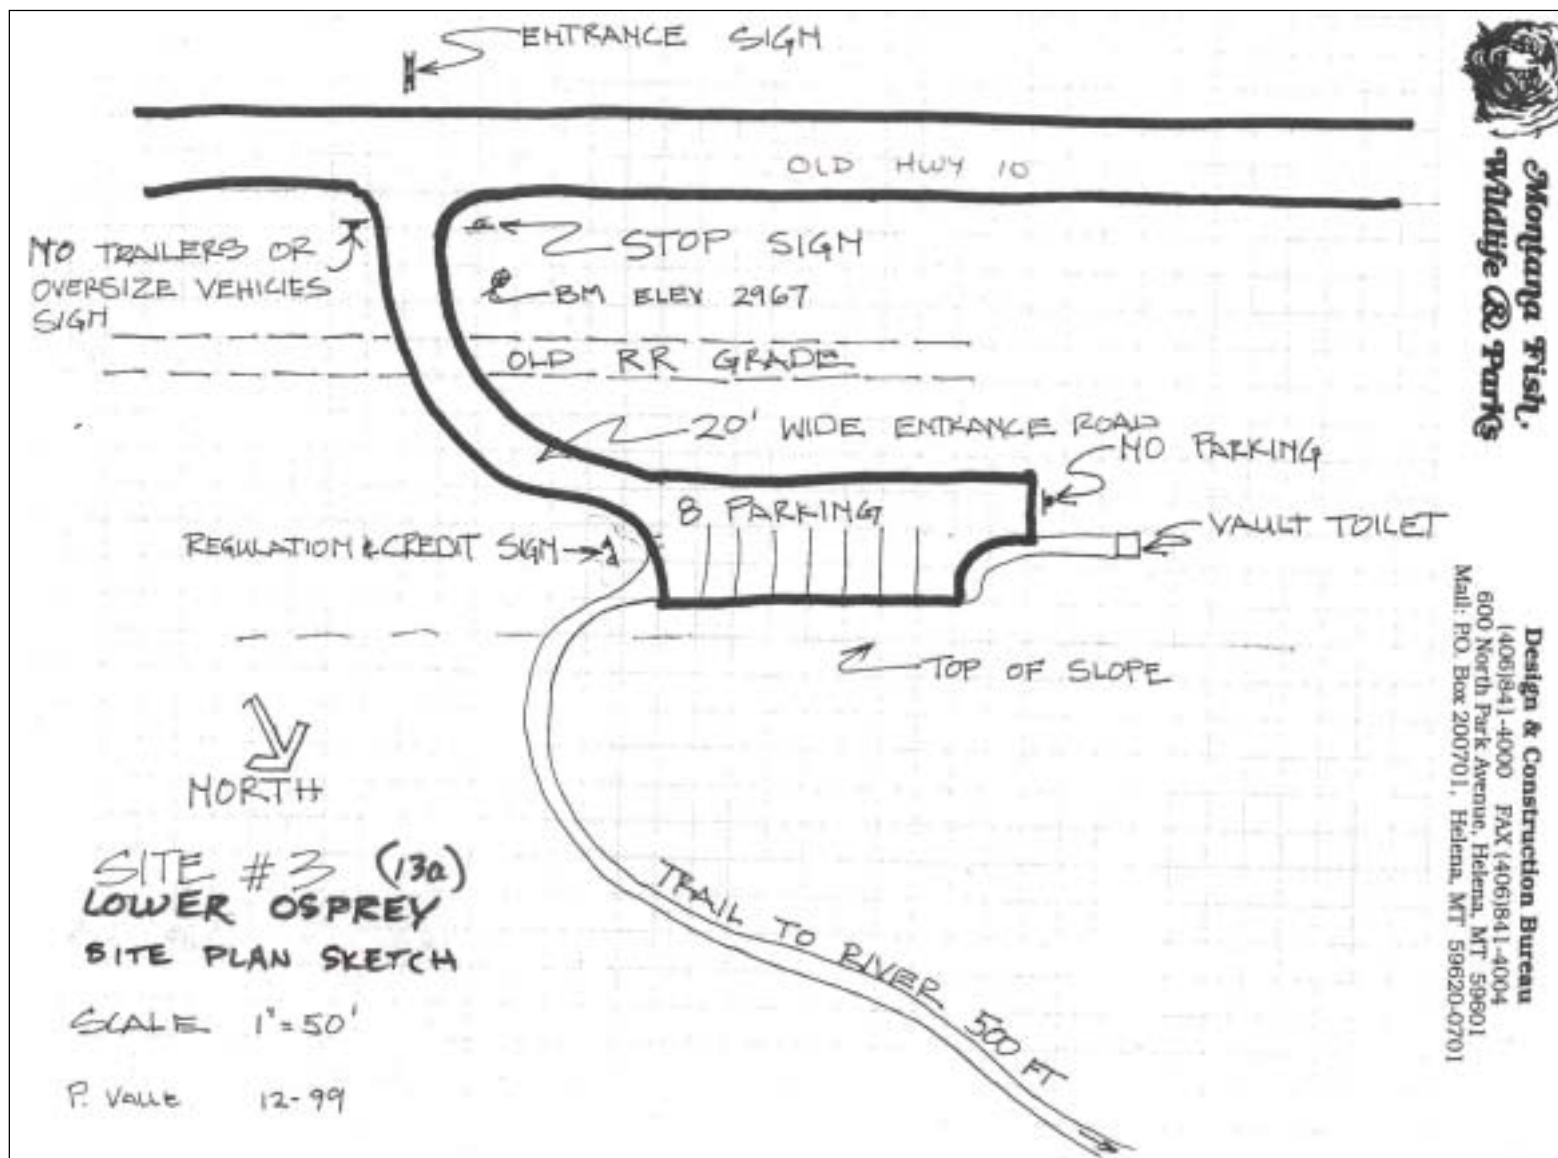 ENTRANCE SIGN
OLD HWY 10
NO TRAILERS OR
OVERSIZE VEHICLES
SIGN
STOP SIGN
BM ELEV 2967
OLD RR GRADE
20' WIDE ENTRANCE ROAD
NO PARKING
8 PARKING
VAULT TOILET
REGULATION & CREDIT SIGN
TOP OF SLOPE
NORTH
SITE #3 (13a)
LOWER OSPREY
SITE PLAN SKETCH
SCALE 1"=50'
P. VALLE 12-99
TRAIL TO RIVER 500 FT
Montana Fish,
Wildlife & Parks
Design & Construction Bureau
(406)841-4000 FAX (406)841-4004
600 North Park Avenue, Helena, MT 59601
Mail: P.O. Box 200701, Helena, MT 59620-0701